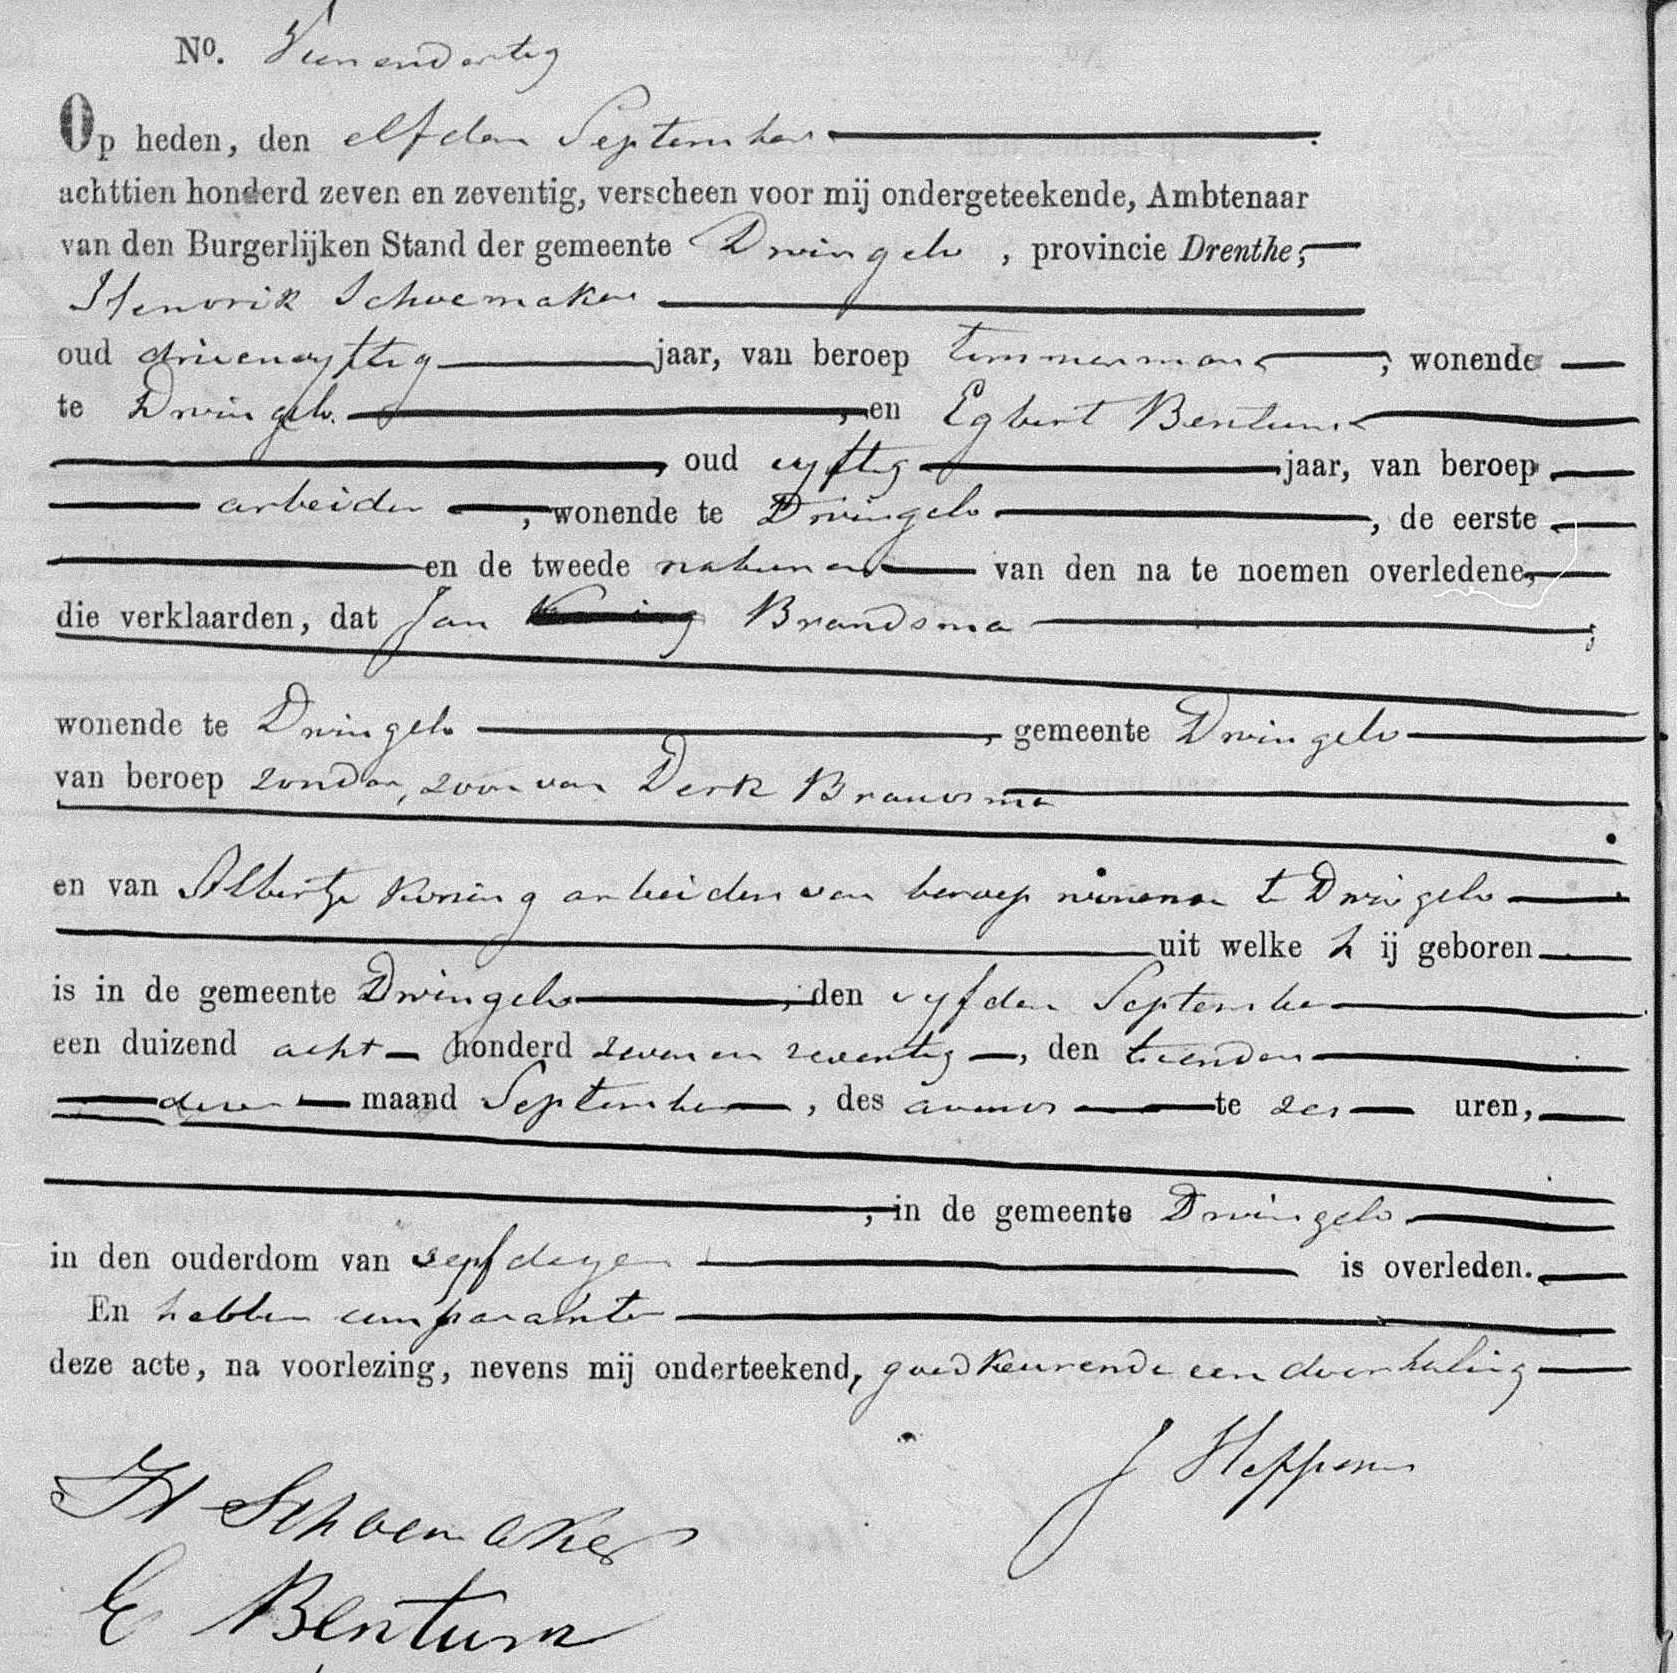 No. Vierendertig
Op heden, den elfden September
achttien honderd zeven en zeventig, verscheen voor mij ondergeteekende, Ambtenaar
van den Burgerlijken Stand der gemeente Dwingelo, provincie Drenthe,
Hendrik Schoemaker
oud drieenvyftig jaar, van beroep timmerman, wonende
te Dwingelo, en Egbert Bentum
, oud vyftig jaar, van beroep
arbeider, wonende te Dwingelo, de eerste
en de tweede naburen van den na te noemen overledene,
die verklaarden, dat Jan Koning Brandsma;
wonende te Dwingelo, gemeente Dwingelo
van beroep zonder, zoon van Derk Brandsma
en van Albertje Koning arbeiders van beroep wonende te Dwingelo
uit welke hij geboren
is in de gemeente Dwingelo, den vyfden September
een duizend acht honderd zeven en zeventig, den tienden
dezer maand September, des avonds te zes uren,
, in de gemeente Dwingelo
in den ouderdom van vyf dagen is overleden.
En hebben comparanten
deze acte, na voorlezing, nevens mij onderteekend, goedkeurende een doorhaling
J Heppen
H Schoemaker
E Bentum